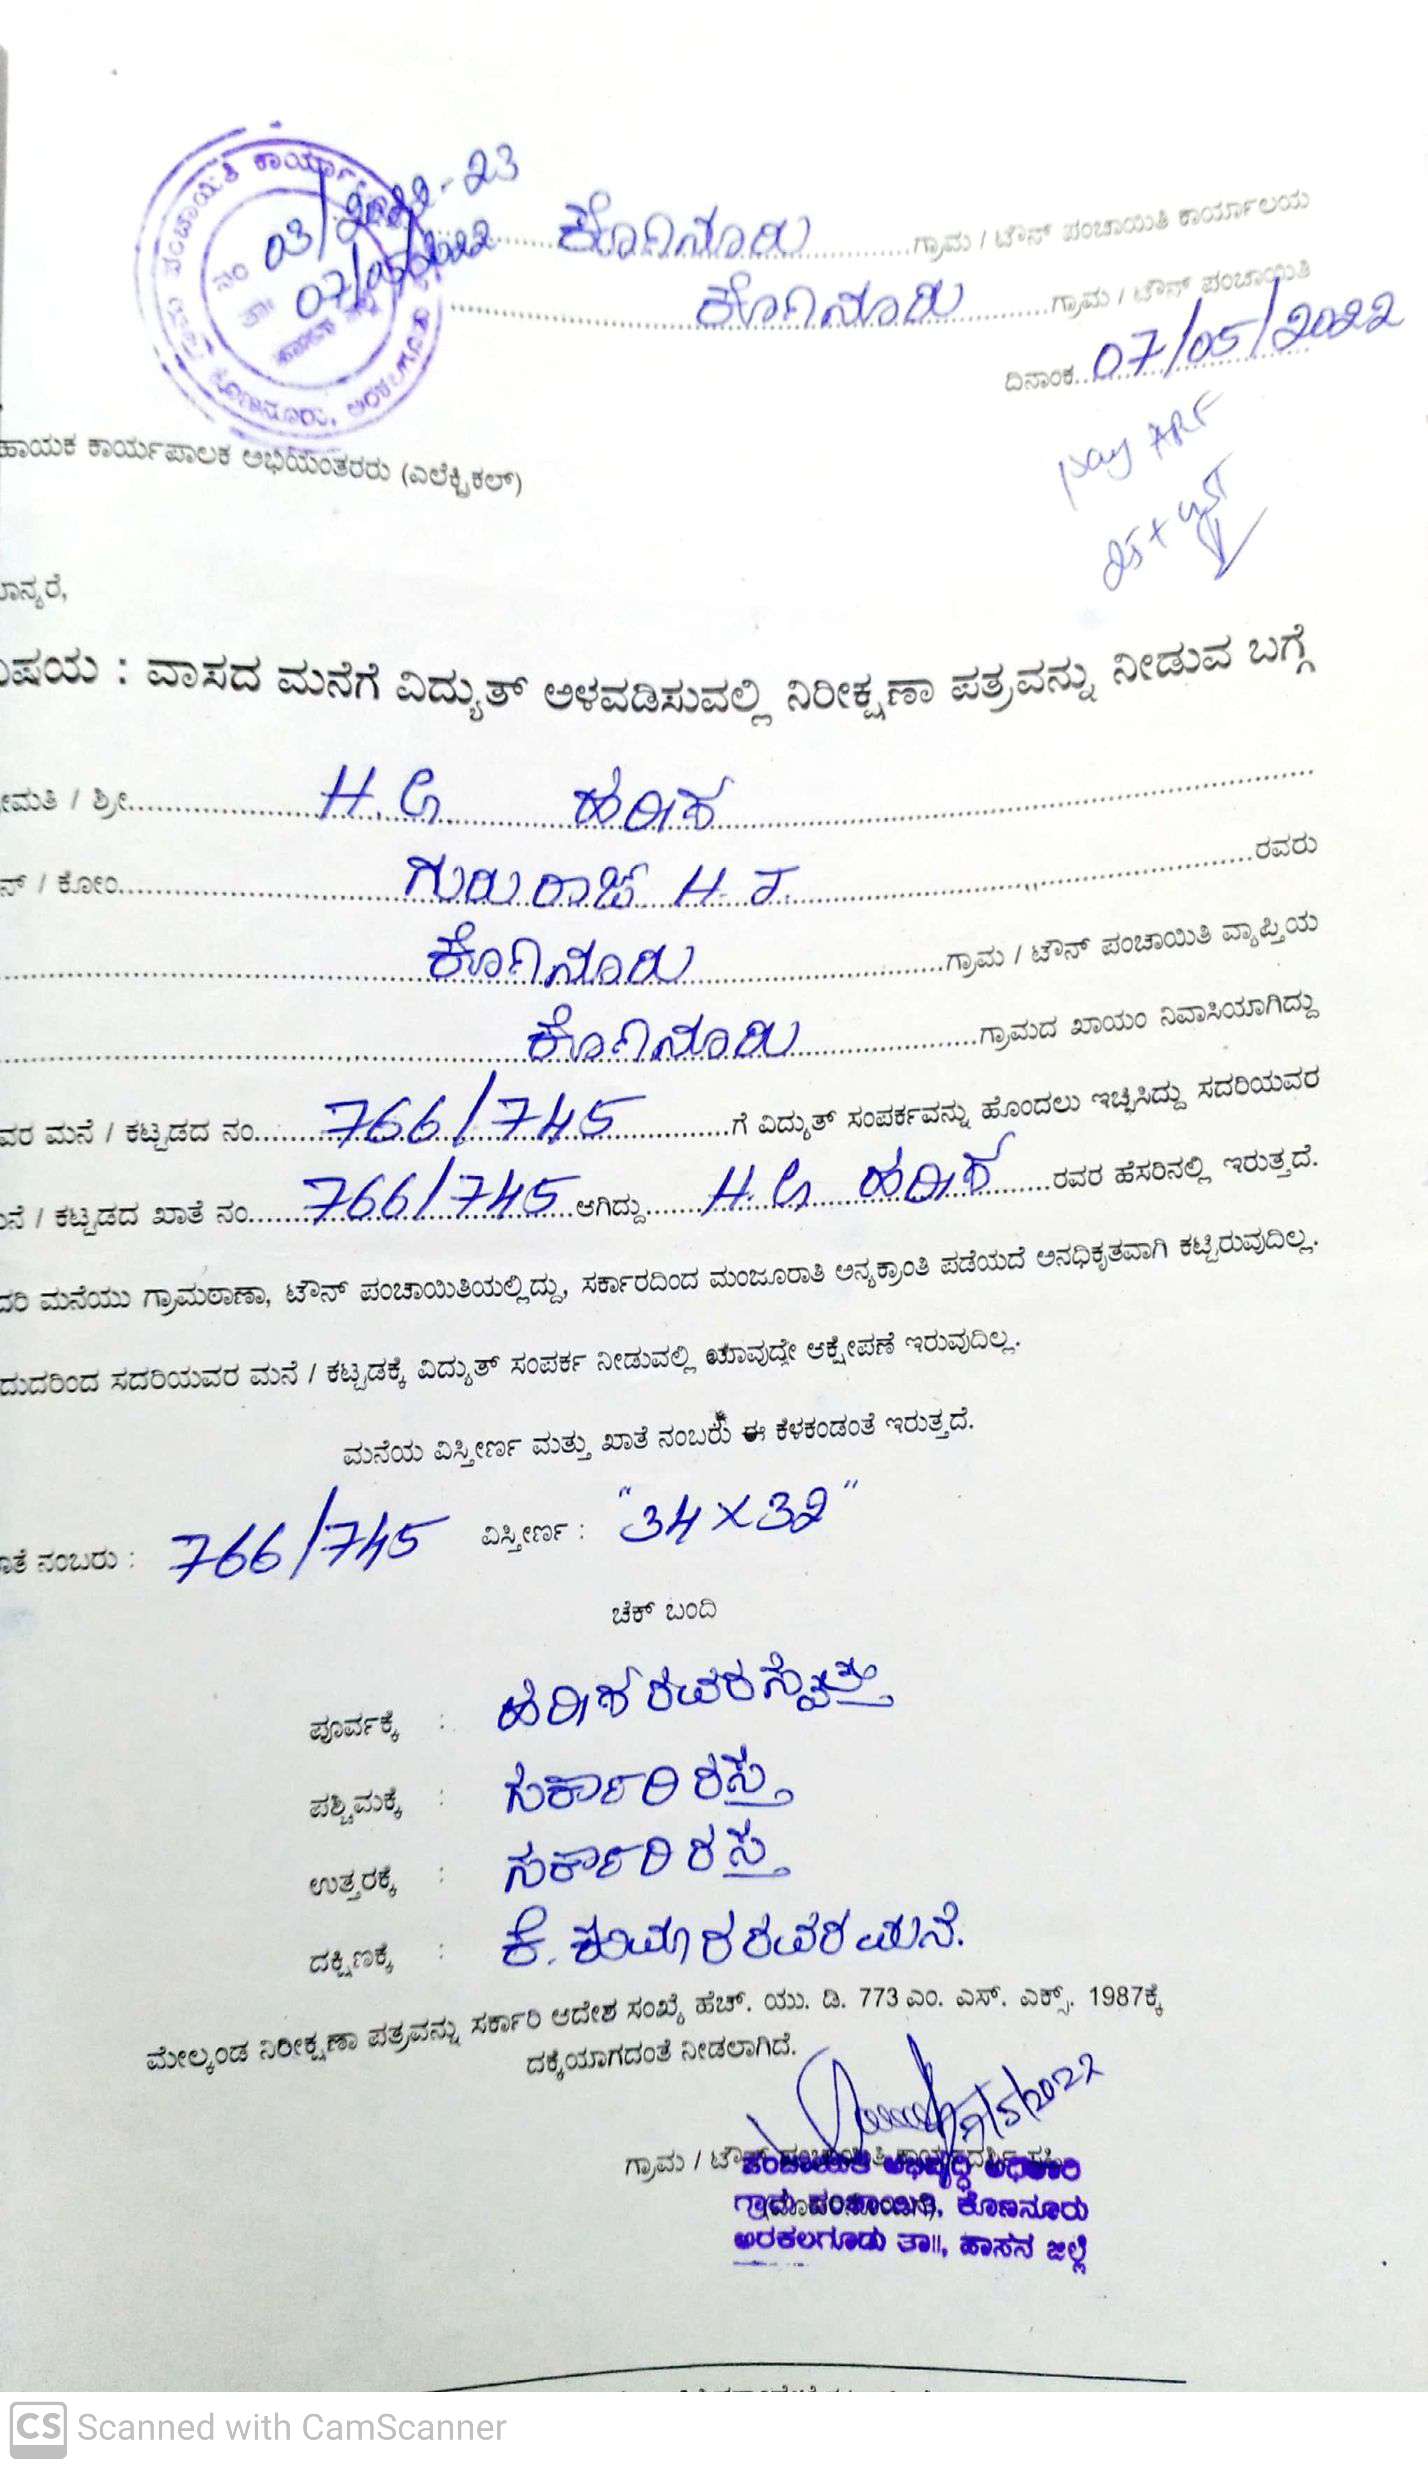 ಪಂಚಾಯಿತಿ ಕಾರ್ಯಾ
ನಂ 03/2022-23
ತಾಃ 07/05/2022
ಕೊಣನೂರು, ಅರಕಲಗೂಡು
ಕೊಣನೂರು ಗ್ರಾಮ / ಟೌನ್ ಪಂಚಾಯಿತಿ ಕಾರ್ಯಾಲಯ
ಕೊಣನೂರು ಗ್ರಾಮ / ಟೌನ್ ಪಂಚಾಯಿತಿ
ದಿನಾಂಕ 07/05/2022
pay ARF
ಹಾಯಕ ಕಾರ್ಯಪಾಲಕ ಅಭಿಯಂತರರು (ಎಲೆಕ್ಟ್ರಿಕಲ್)
ಾನ್ಯರೆ,
ಿಷಯ : ವಾಸದ ಮನೆಗೆ ವಿದ್ಯುತ್ ಅಳವಡಿಸುವಲ್ಲಿ ನಿರೀಕ್ಷಣಾ ಪತ್ರವನ್ನು ನೀಡುವ ಬಗ್ಗೆ
ೀಮತಿ / ಶ್ರೀ H.G ಹರೀಶ
ನ್ / ಕೋಂ ಗುರುರಾಜ H.ಕ. ರವರು
ಕೊಣನೂರು ಗ್ರಾಮ / ಟೌನ್ ಪಂಚಾಯಿತಿ ವ್ಯಾಪ್ತಿಯ
ಕೊಣನೂರು ಗ್ರಾಮದ ಖಾಯಂ ನಿವಾಸಿಯಾಗಿದ್ದು
ವರ ಮನೆ / ಕಟ್ಟಡದ ನಂ 766/745 ಗೆ ವಿದ್ಯುತ್ ಸಂಪರ್ಕವನ್ನು ಹೊಂದಲು ಇಚ್ಛಿಸಿದ್ದು ಸದರಿಯವರ
ನೆ / ಕಟ್ಟಡದ ಖಾತೆ ನಂ 766/745 ಆಗಿದ್ದು H.G ಹರೀಶ ರವರ ಹೆಸರಿನಲ್ಲಿ ಇರುತ್ತದೆ.
ದರಿ ಮನೆಯು ಗ್ರಾಮಠಾಣಾ, ಟೌನ್ ಪಂಚಾಯಿತಿಯಲ್ಲಿದ್ದು, ಸರ್ಕಾರದಿಂದ ಮಂಜೂರಾತಿ ಅನ್ಯಕ್ರಾಂತಿ ಪಡೆಯದೆ ಅನಧಿಕೃತವಾಗಿ ಕಟ್ಟಿರುವುದಿಲ್ಲ.
ದುದರಿಂದ ಸದರಿಯವರ ಮನೆ / ಕಟ್ಟಡಕ್ಕೆ ವಿದ್ಯುತ್ ಸಂಪರ್ಕ ನೀಡುವಲ್ಲಿ ಯಾವುದೇ ಆಕ್ಷೇಪಣೆ ಇರುವುದಿಲ್ಲ.
ಮನೆಯ ವಿಸ್ತೀರ್ಣ ಮತ್ತು ಖಾತೆ ನಂಬರು ಈ ಕೆಳಕಂಡಂತೆ ಇರುತ್ತದೆ.
ಾತೆ ನಂಬರು : 766/745 ವಿಸ್ತೀರ್ಣ : "34×32"
ಚೆಕ್ ಬಂದಿ
ಪೂರ್ವಕ್ಕೆ : ಹರೀಶ ರವರ ಸ್ವತ್ತು
ಪಶ್ಚಿಮಕ್ಕೆ : ಸರ್ಕಾರಿ ರಸ್ತೆ
ಉತ್ತರಕ್ಕೆ : ಸರ್ಕಾರಿ ರಸ್ತೆ
ದಕ್ಷಿಣಕ್ಕೆ : ಕೆ. ಕುಮಾರ ರವರ ಮನೆ.
ಮೇಲ್ಕಂಡ ನಿರೀಕ್ಷಣಾ ಪತ್ರವನ್ನು ಸರ್ಕಾರಿ ಆದೇಶ ಸಂಖ್ಯೆ ಹೆಚ್. ಯು. ಡಿ. 773 ಎಂ. ಎಸ್. ಎಕ್ಸ್. 1987ಕ್ಕೆ
ದಕ್ಕೆಯಾಗದಂತೆ ನೀಡಲಾಗಿದೆ.
7/5/2022
ಗ್ರಾಮ / ಟೌನ್ ಪಂಚಾಯಿತಿ ಕಾರ್ಯದರ್ಶಿ ಸಹಿ
ಪಂಚಾಯಿತಿ ಅಭಿವೃದ್ಧಿ ಅಧಿಕಾರಿ
ಗ್ರಾಮ ಪಂಚಾಯಿತಿ, ಕೊಣನೂರು
ಅರಕಲಗೂಡು ತಾ||, ಹಾಸನ ಜಿಲ್ಲೆ
CS Scanned with CamScanner